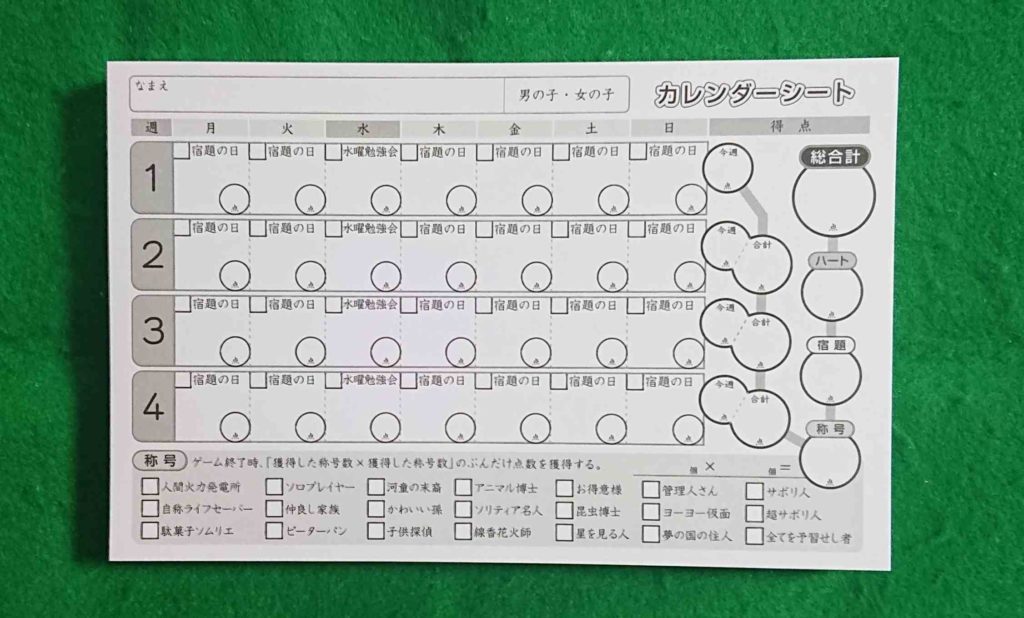 なまえ 男の子・女の子 カレンダーシート
週 月 火 水 木 金 土 日 得点
1 宿題の日 宿題の日 水曜勉強会 宿題の日 宿題の日 宿題の日 宿題の日 今週 総合計
点 点 点 点 点 点 点 点 点
2 宿題の日 宿題の日 水曜勉強会 宿題の日 宿題の日 宿題の日 宿題の日 今週 合計 ハート
点 点 点 点 点 点 点 点 点 点
3 宿題の日 宿題の日 水曜勉強会 宿題の日 宿題の日 宿題の日 宿題の日 今週 合計 宿題
点 点 点 点 点 点 点 点 点 点
4 宿題の日 宿題の日 水曜勉強会 宿題の日 宿題の日 宿題の日 宿題の日 今週 合計 称号
点 点 点 点 点 点 点 点 点 点
称号 ゲーム終了時、「獲得した称号数×獲得した称号数」のぶんだけ点数を獲得する。 個 × 個 =
人間火力発電所 ソロプレイヤー 河童の末裔 アニマル博士 お得意様 管理人さん サボリ人
自称ライフセーバー 仲良し家族 かわいい孫 ソリティア名人 昆虫博士 ヨーヨー仮面 超サボリ人
駄菓子ソムリエ ピーターパン 子供探偵 線香花火師 星を見る人 夢の国の住人 全てを予習せし者